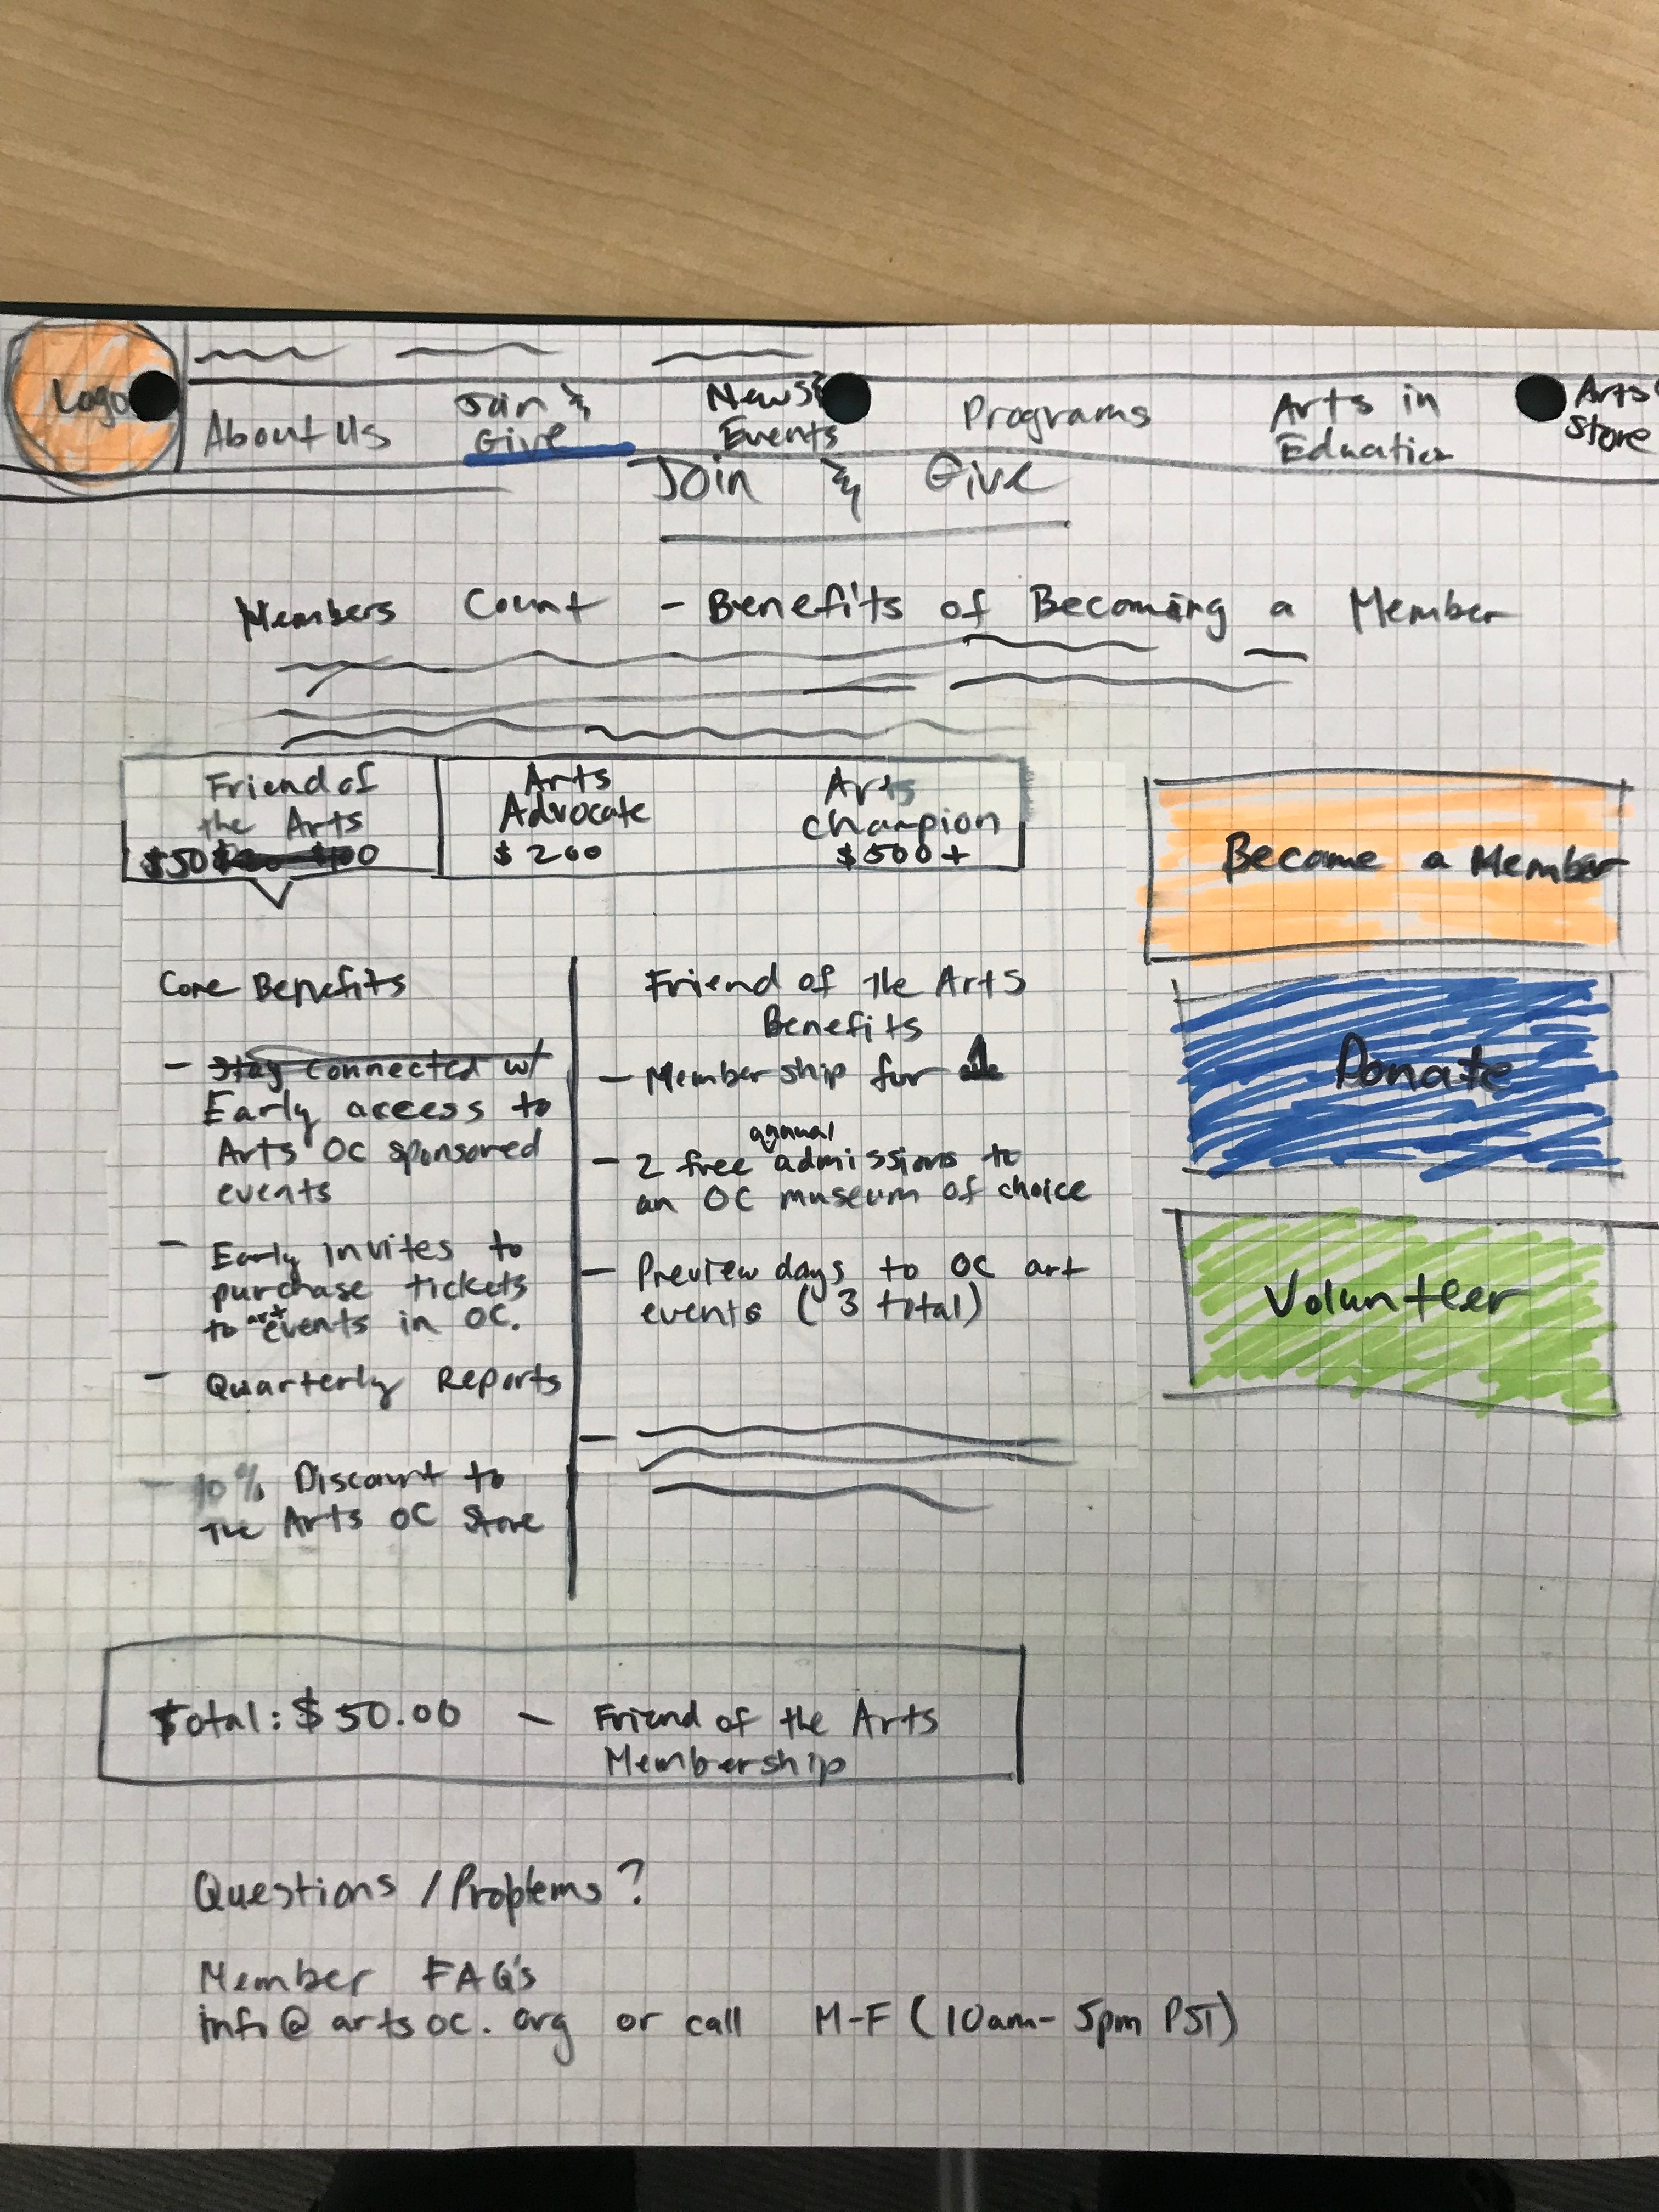 Logo
About Us
Join &
Give
News &
Events
Programs
Arts in
Education
Arts
Store
Join & Give
Members Count - Benefits of Becoming a Member
Friend of
the Arts
$50
Arts
Advocate
$200
Arts
Champion
$500+
Become a Member
Donate
Volunteer
Core Benefits
- Stay connected w/
Early access to
Arts OC sponsored
events
- Early invites to
purchase tickets
to art events in OC.
- Quarterly Reports
- 10% Discount to
The Arts OC Store
Friend of the Arts
Benefits
- Membership for 1
- 2 free annual admissions to
an OC museum of choice
- Preview days to OC art
events (3 total)
Total: $50.00 - Friend of the Arts
Membership
Questions / Problems?
Member FAQ's
info@artsoc.org or call M-F (10am-5pm PST)